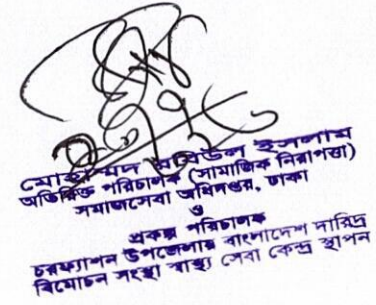 মোহাম্মদ রবিউল ইসলাম
অতিরিক্ত পরিচালক (সামাজিক নিরাপত্তা)
সমাজসেবা অধিদপ্তর, ঢাকা
ও
প্রকল্প পরিচালক
চরফ্যাশন উপজেলায় বাংলাদেশ দারিদ্র
বিমোচন সংস্থা স্বাস্থ্য সেবা কেন্দ্র স্থাপন